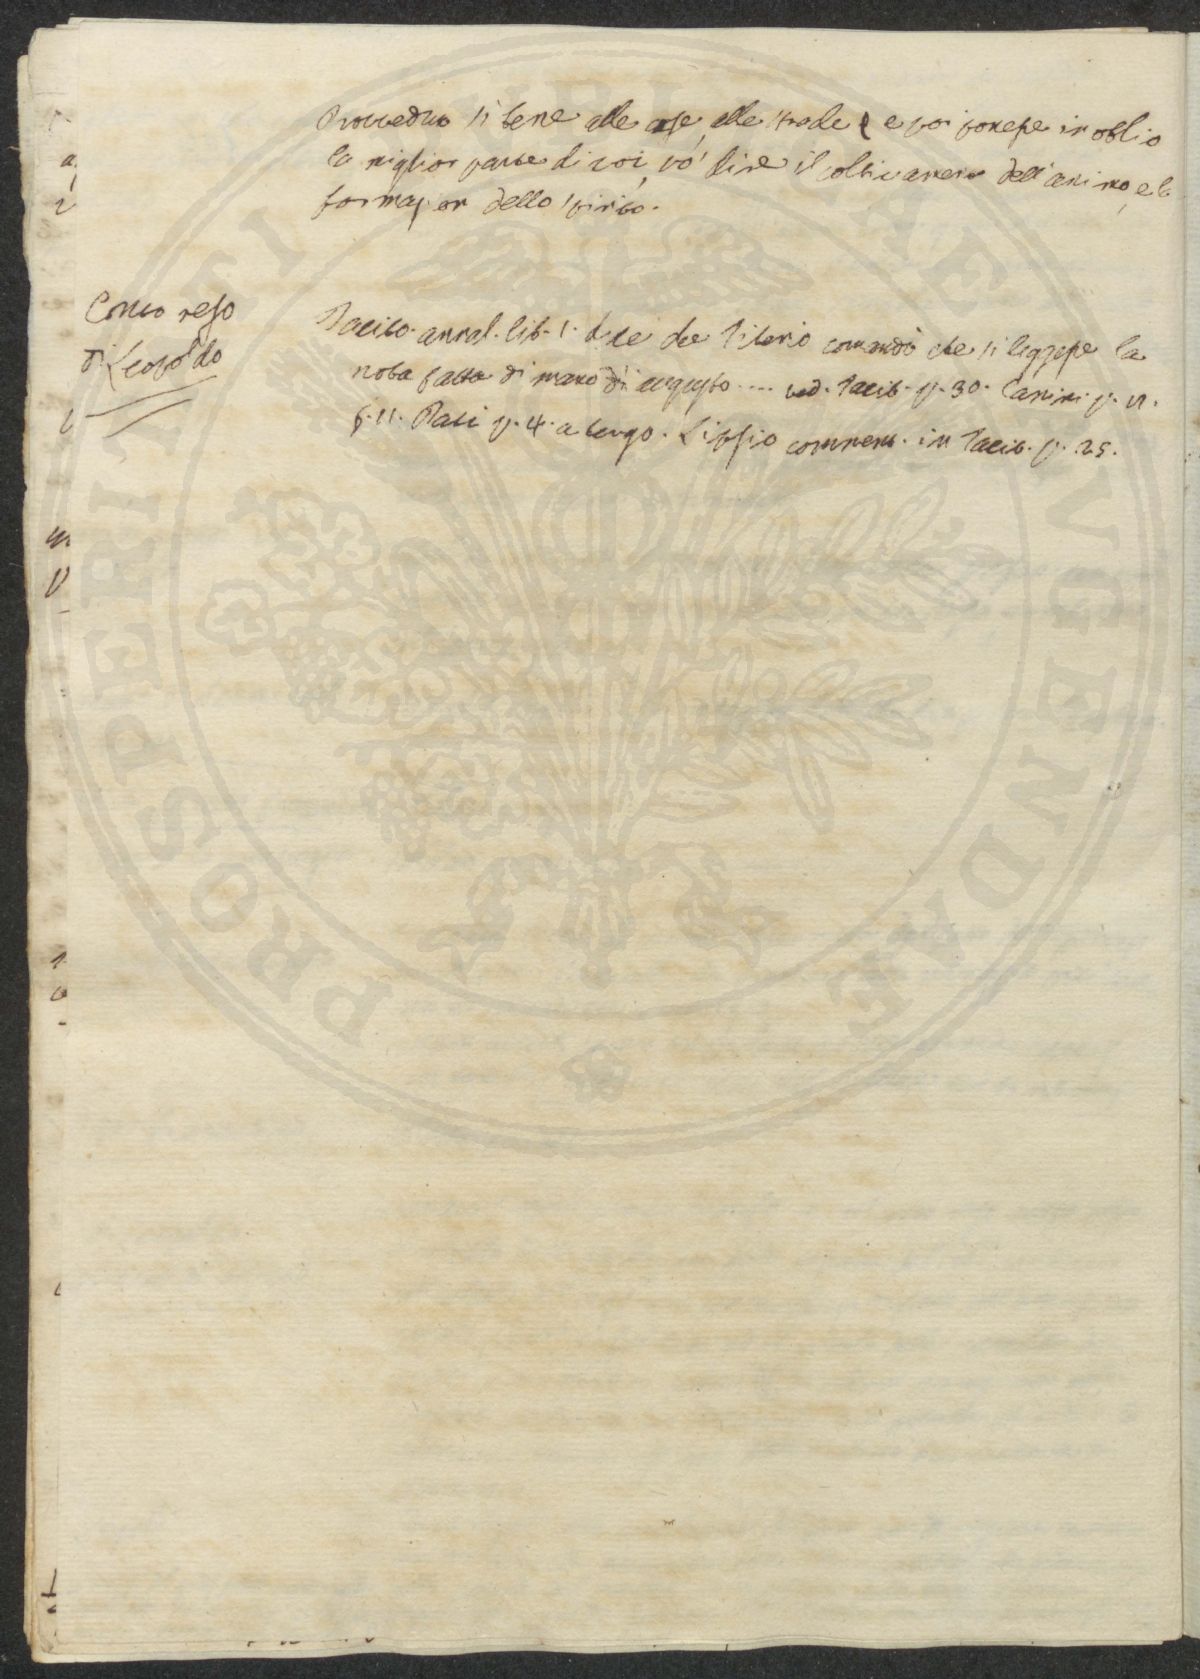 Provvedeva sì bene alle case, alle strade e poi ponesse in oblio
la miglior parte di voi, vo' dire il coltivamento dell'animo, e la
formazion dello spirito.
Conto reso
di Leopoldo
Tacito annal. lib. 1. dice che Tiberio comandò che si leggesse la
nota fatta di mano di augusto .... ved. Tacit. p. 30. Canini p. 11.
Pati p. 4. a tergo. Lipsio comment. in Tacit. p. 25.
PROSPERITATI PUBLICAE AVGENDAE